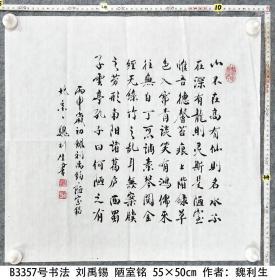 山不在高有仙則名水不
在深有龍則靈斯是陋室
惟吾德馨苔痕上階綠草
色入簾青談笑有鴻儒來
往無白丁可調素琴閱金
經無絲竹之亂耳無案牘
之勞形南陽諸葛廬西蜀
子雲亭孔子曰何陋之有
丙申嵗初錄刘禹錫陋室銘
魏利生書
B3357号书法 刘禹锡 陋室铭 55×50cm 作者：魏利生